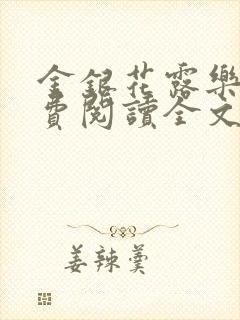 金銀花露樂
費閱讀全文
姜辣羹